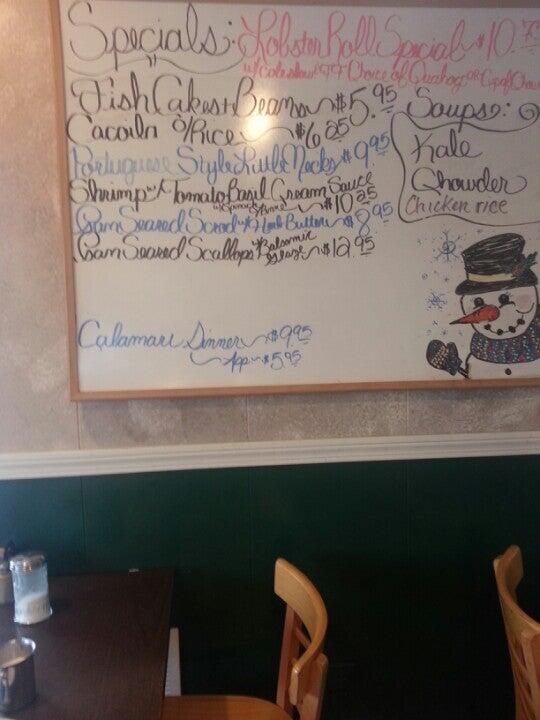 Specials:
Lobster Roll Special ~ $10.
w/ Coleslaw + FF Choice of Quahog or Cup of Chow
Fish Cakes + Beans ~ $5.95
Cacoila o/Rice ~ $6.25
Portuguese Style Little Necks $9.95
Shrimp w/ Tomato Basil Cream Sauce
w/ Spinach + Penne ~ $10.25
Pan Seared Scrod w/ Herb Butter ~ $8.95
Pan Seared Scallops w/ Balsamic
Glaze ~ $12.95
Calamari Dinner ~ $9.95
App ~ $5.95
Soups:
Kale
Chowder
Chicken rice